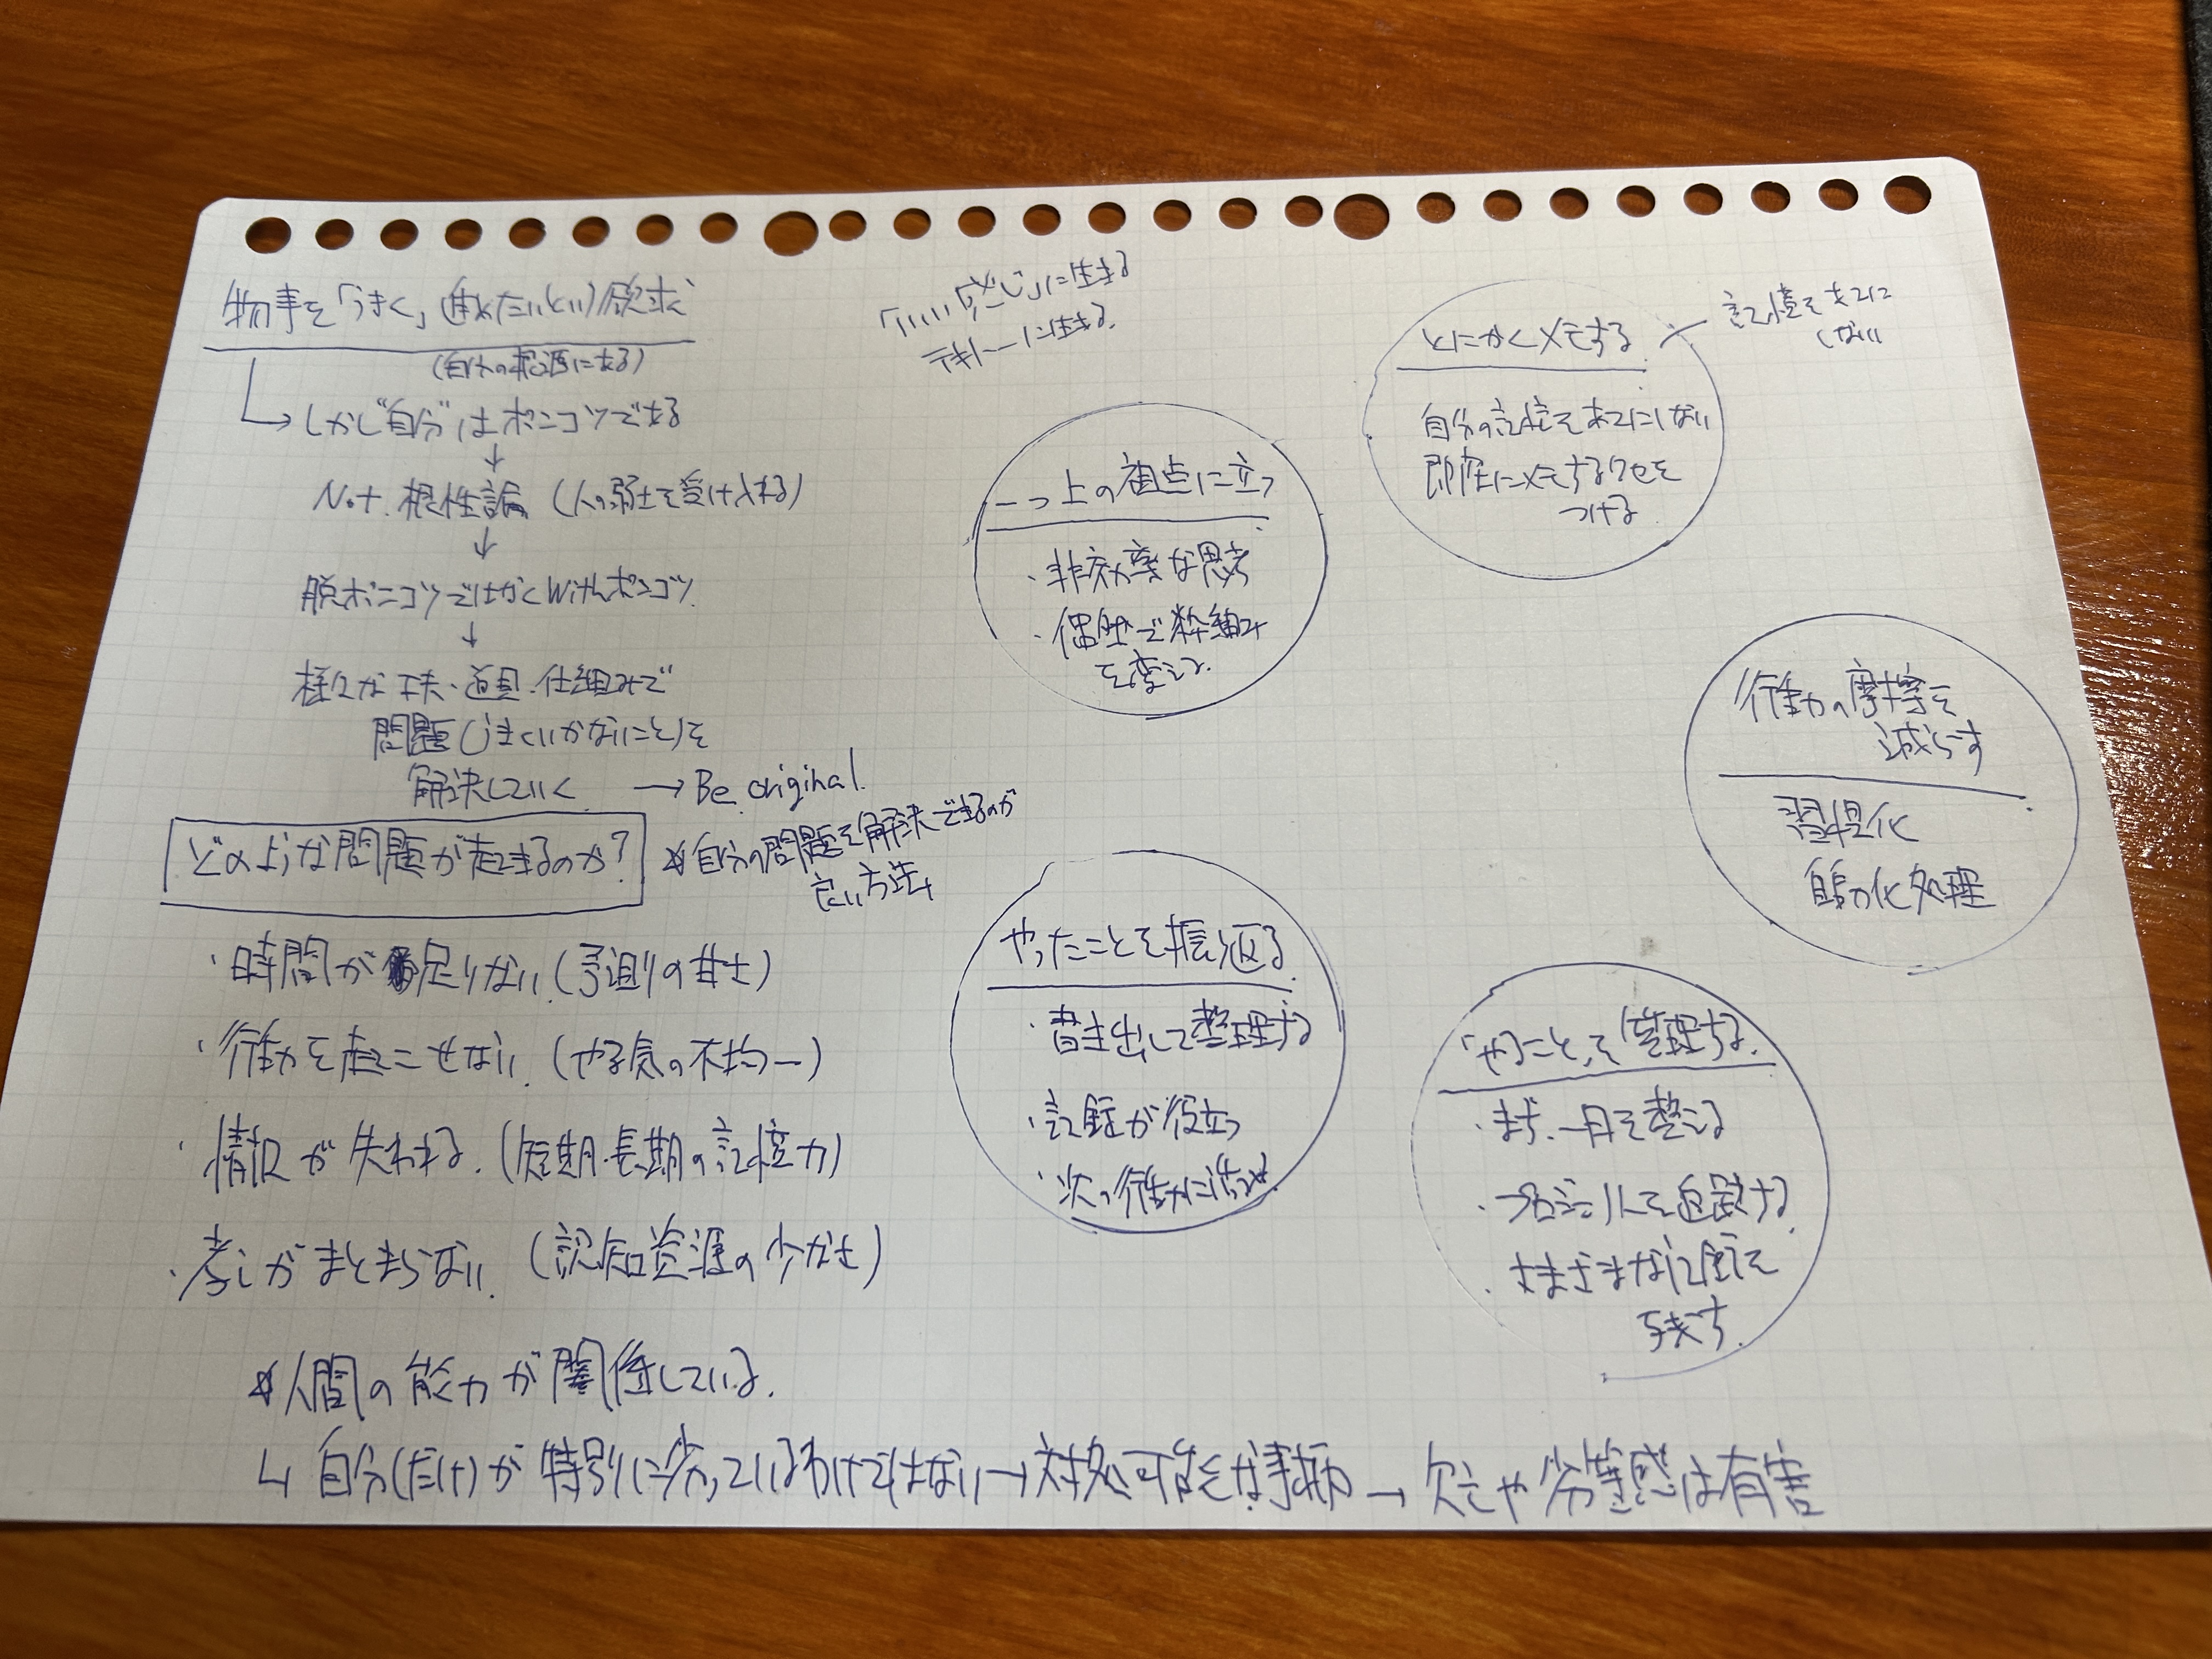 物事を「うまく」進めたいという欲求
(自分の根源にある)
→しかし"自分"はポンコツである
↓
Not 根性論 (人の弱さを受け入れる)
↓
脱ポンコツではなくWithポンコツ
↓
様々な工夫・道具・仕組みで
問題(うまくいかないこと)を
解決していく → Be original.
☆自分の問題を解決できるのが
良い方法
どのような問題が起きるのか?
・時間が足りない (見通りの甘さ)
・行動を起こせない (やる気の不均一)
・情報が失われる (短期・長期の記憶力)
・考えがまとまらない (認知資源の少なさ)
☆人間の能力が関係している。
↳ 自分(だけ)が特別に劣っているわけではない→対処可能な事柄→欠点や劣等感は有害
「いい感じ」に生きる
テキトーに生きる
一つ上の視点に立つ
・非効率な思考
・偶然で枠組み
を変える
とにかくメモする
記憶をあてに
しない
自分の記憶をあてにしない
即座にメモするクセを
つける
行動の摩擦を
減らす
習慣化
自動化処理
やったことを振り返る
・書き出して整理する
・記録が役立つ
・次の行動に活かせ
「やること」を管理する
・まず、一日を整える
・プロジェクトを追跡する
・さまざまな記録を
残す